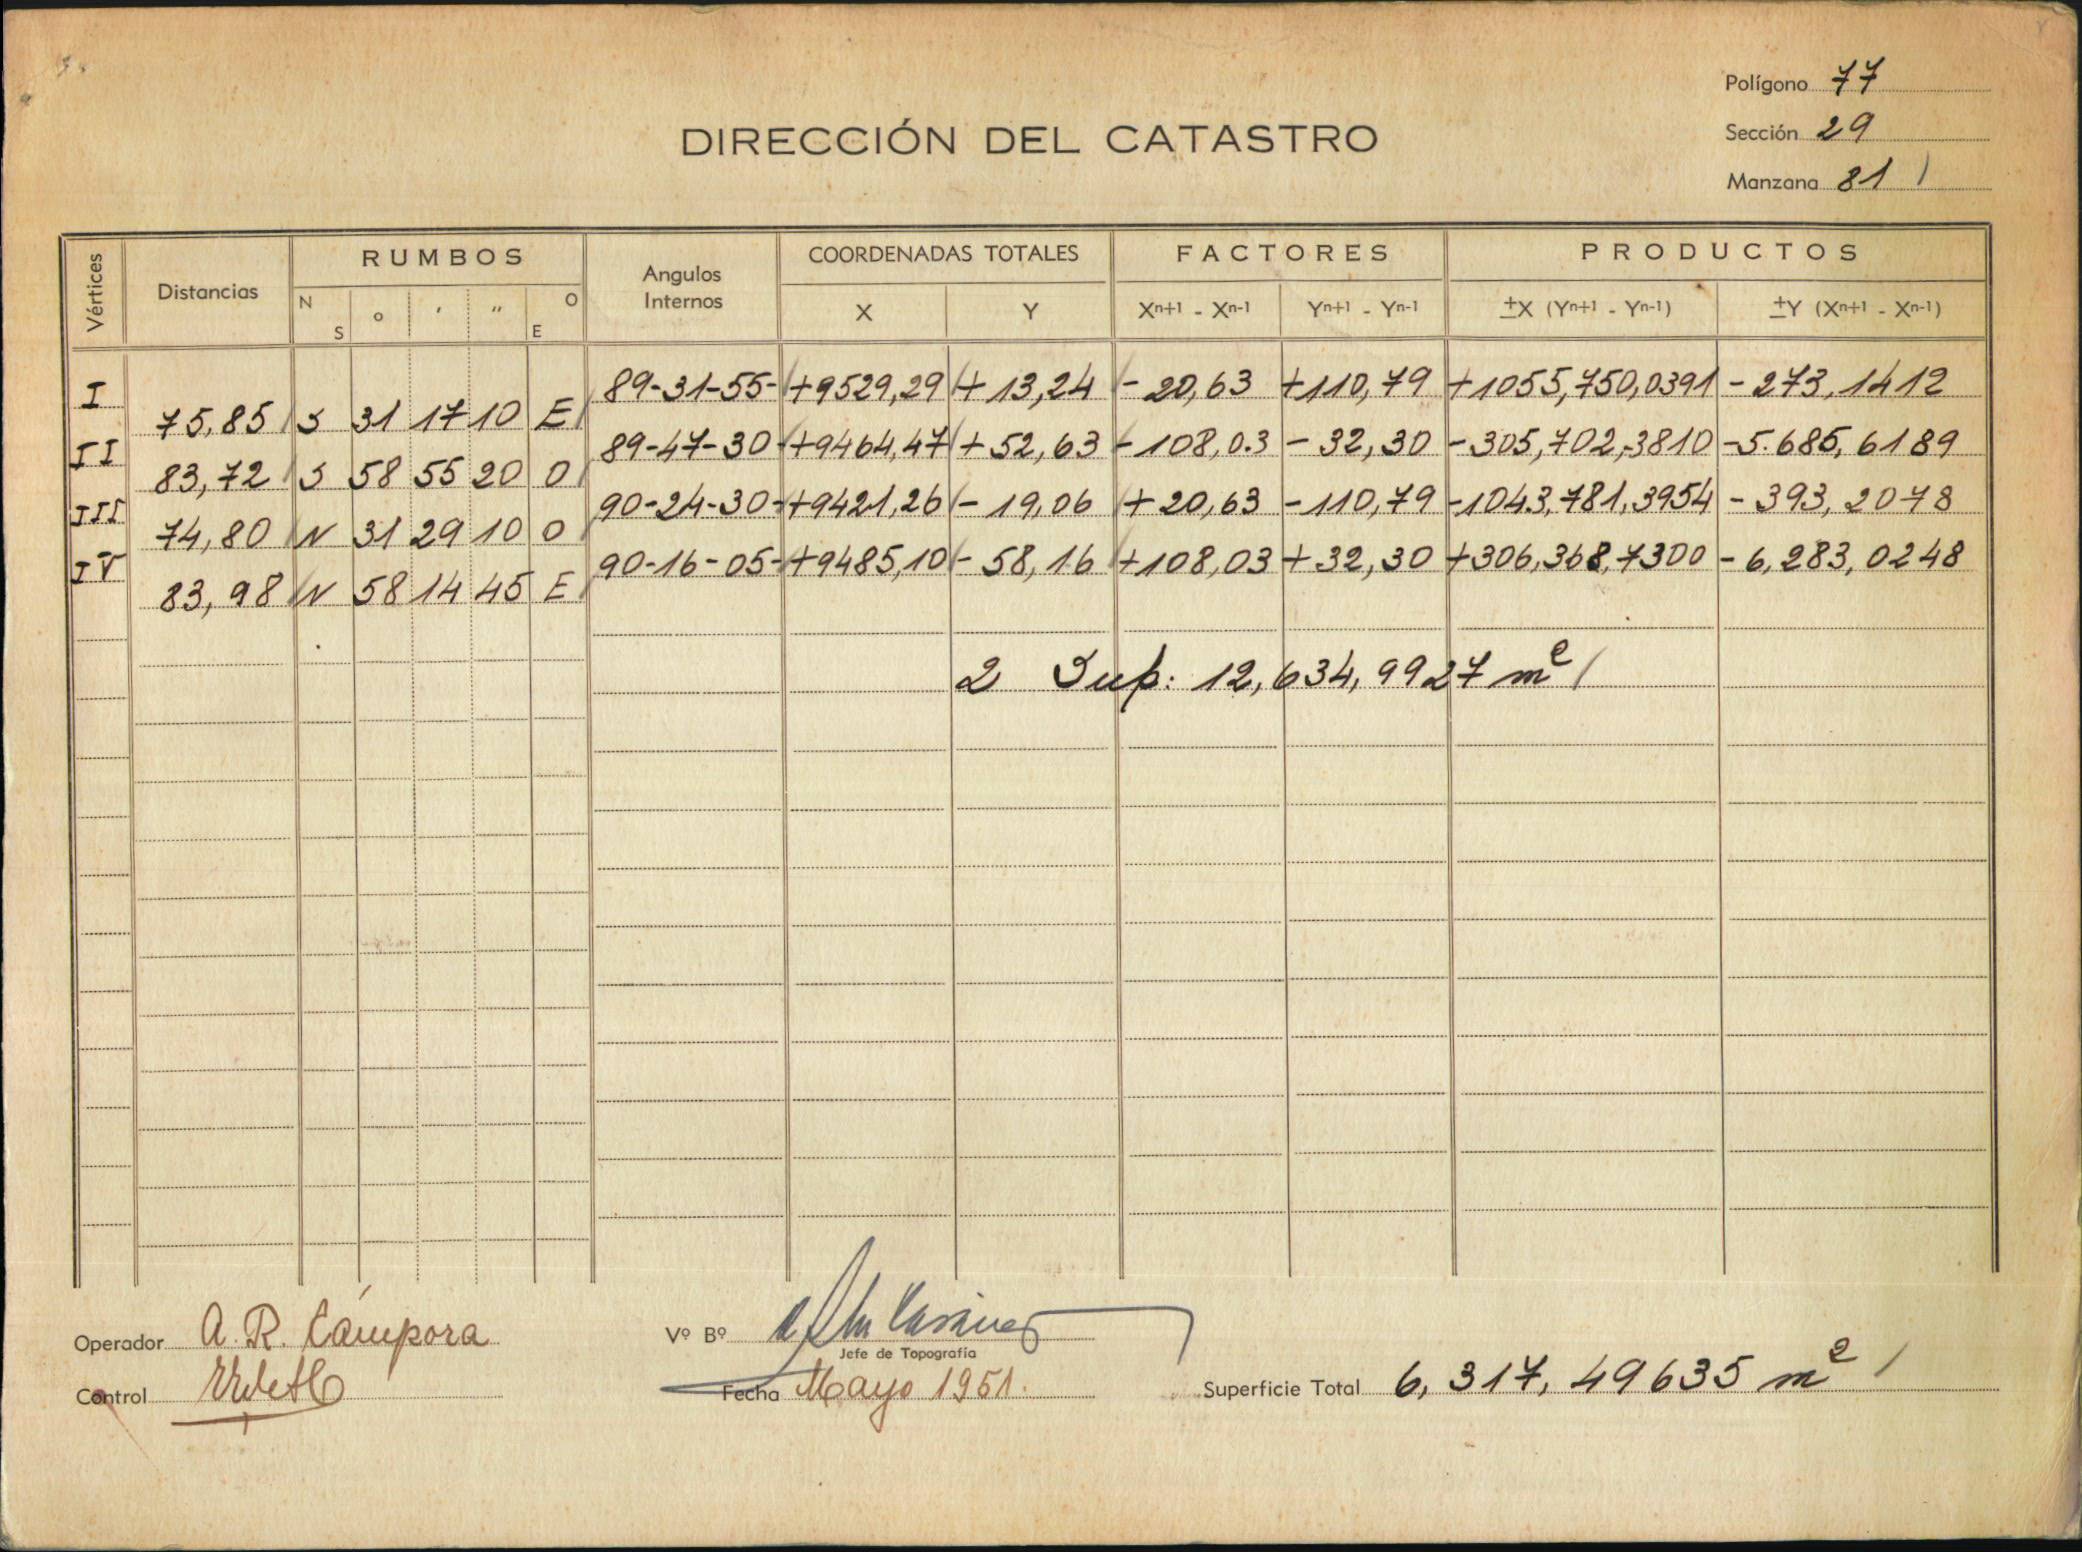 Polígono 77
DIRECCIÓN DEL CATASTRO
Sección 29
Manzana 81
Vértices Distancias RUMBOS Angulos Internos COORDENADAS TOTALES FACTORES PRODUCTOS
N S o ' " O E X Y Xn+1 - Xn-1 Yn+1 - Yn-1 ±X (Yn+1 - Yn-1) ±Y (Xn+1 - Xn-1)
I 89-31-55- +9529,29 + 13,24 - 20,63 +110,79 +1055,750,0391 - 273,1412
75,85 S 31 17 10 E
II 89-47-30 +9464,47 + 52,63 - 108,03 - 32,30 -305,702,3810 -5.685,6189
83,72 S 58 55 20 O
III 90-24-30- +9421,26 - 19,06 + 20,63 -110,79 -1043,781,3954 - 393,2078
74,80 N 31 29 10 O
IV 90-16-05- +9485,10 - 58,16 +108,03 +32,30 +306,368,7300 - 6,283,0248
83,98 N 58 14 45 E
2 Sup: 12,634,9927 m²
Operador A. R. Cámpora
Vº Bº
Jefe de Topografía
Control
Fecha Mayo 1951.
Superficie Total 6,317,49635 m²